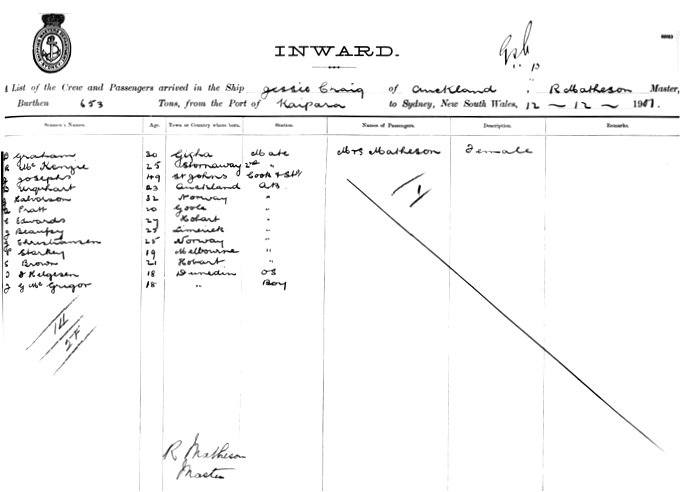 INWARD.
List of the Crew and Passengers arrived in the Ship Jessie Craig of Auckland R Matheson Master,
Burthen 653 Tons, from the Port of Kaipara to Sydney, New South Wales, 12 ~ 12 ~ 1901.
Seamen's Names. Age. Town or Country where born. Station. Names of Passengers. Description. Remarks.
Graham 30 Gigha Mate Mrs Matheson Female
R McKenzie 25 Stornaway 2nd "
J Josephs 49 St Johns Cook & Std
Urquhart 23 Auckland AB 1
Halvorson 32 Norway "
Pratt 20 Goole "
S Edwards 27 Hobart "
J Beaufoy 25 Limerick "
Christiansen 25 Norway "
Starkey 19 Melbourne "
S Brown 21 Hobart "
J Helgesen 18 Dunedin OS
J G McGrigor 18 " Boy
14
R Matheson
Master